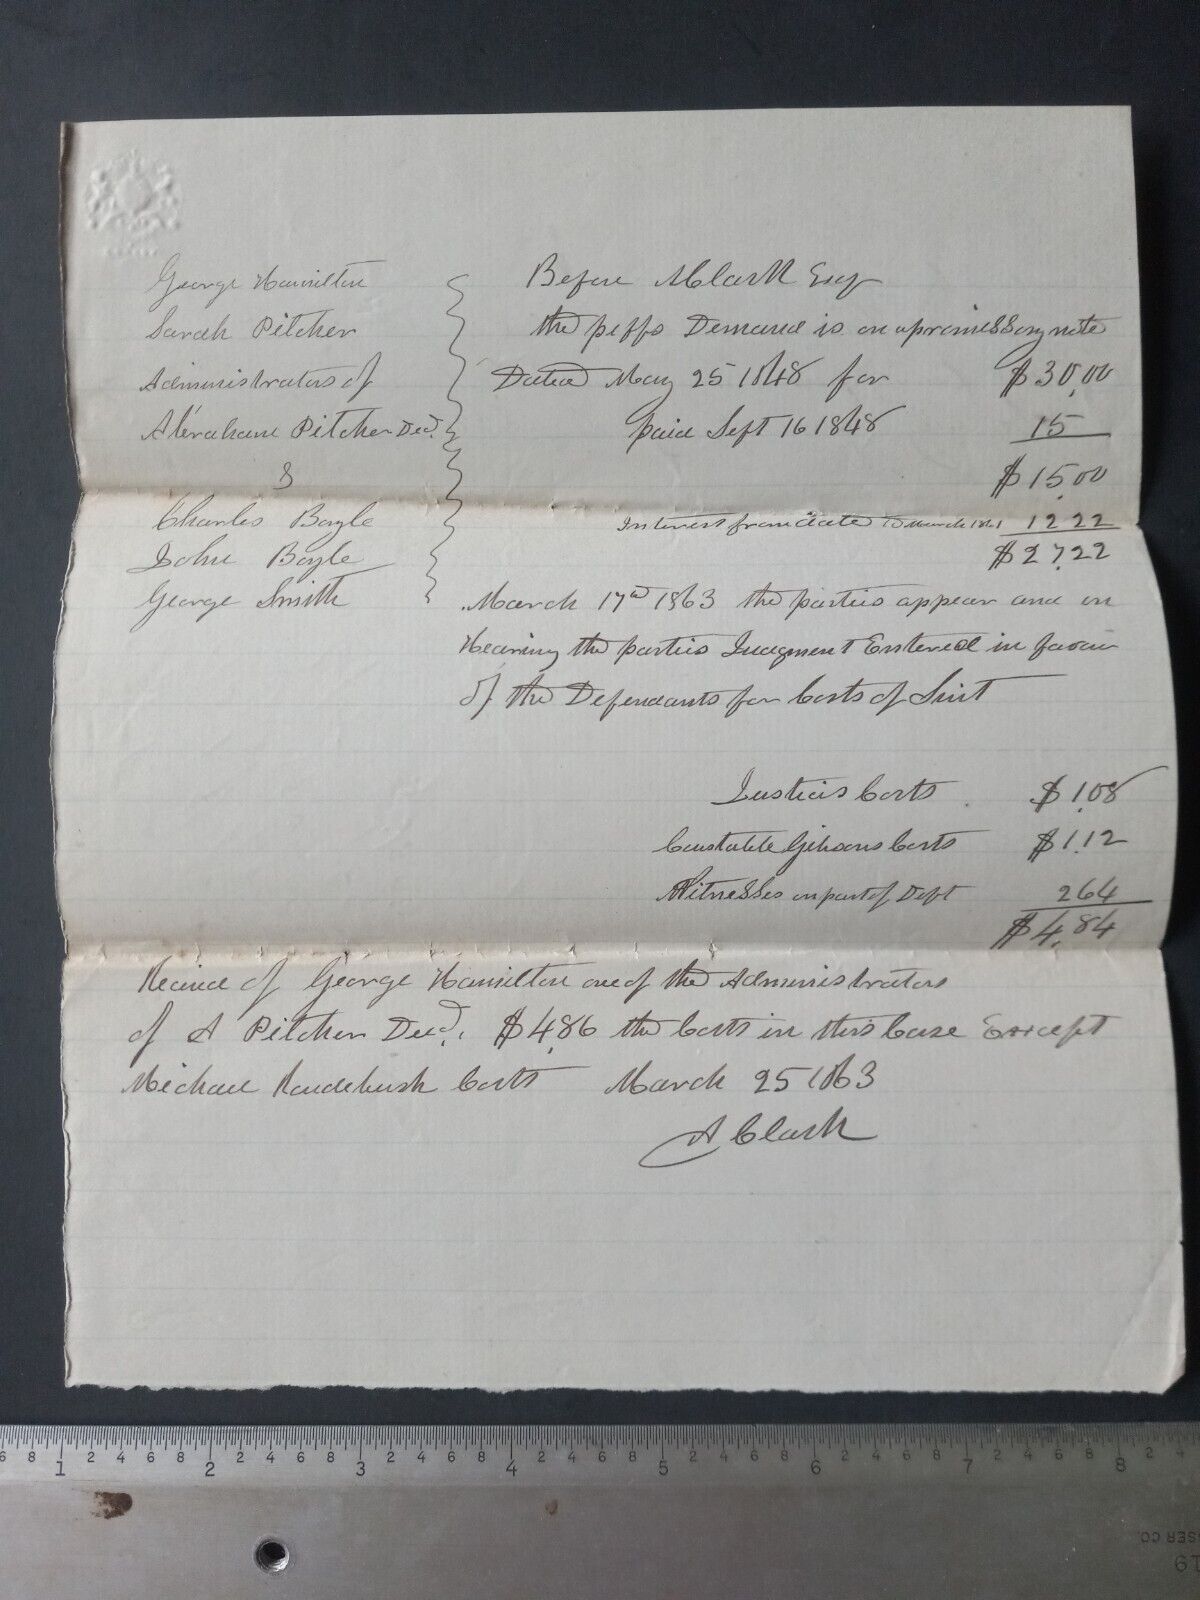 George Hamilton
Sarah Pitcher
Administrators of
Abraham Pitcher Decd.
&
Charles Boyle
John Boyle
George Smith
Before A Clark Esq
the peffs Demand is on a promissory note
Dated May 25 1848 for $30,00
paid Sept 16 1848 15
$15,00
Interest from date to March 1861 12 22
$27,22
March 17th 1863 the parties appear and on
Hearing the parties Judgment Entered in favour
of the Defendants for Costs of Suit
Justices Costs $1,08
Constable Gibsons Costs $1,12
Witnesses on part of Deft 264
$4,84
Received of George Hamilton one of the Administrators
of A Pitcher Decd. $4,86 the Costs in this Case Except
Michael Raudebush Costs March 25 1863
A Clark
6 8 1 2 4 6 8 2 2 4 6 8 3 2 4 6 8 4 2 4 6 8 5 2 4 6 8 6 2 4 6 8 7 2 4 6 8 8 2 4